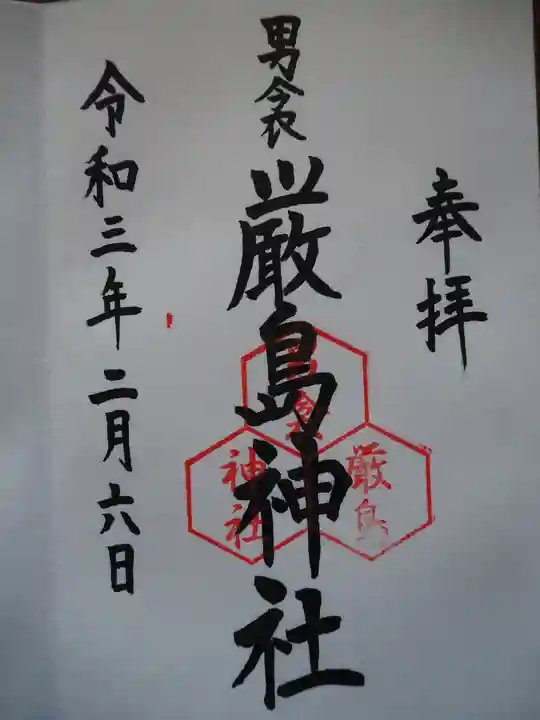 奉拝
男衾
厳島神社
厳島
神社
令和三年二月六日